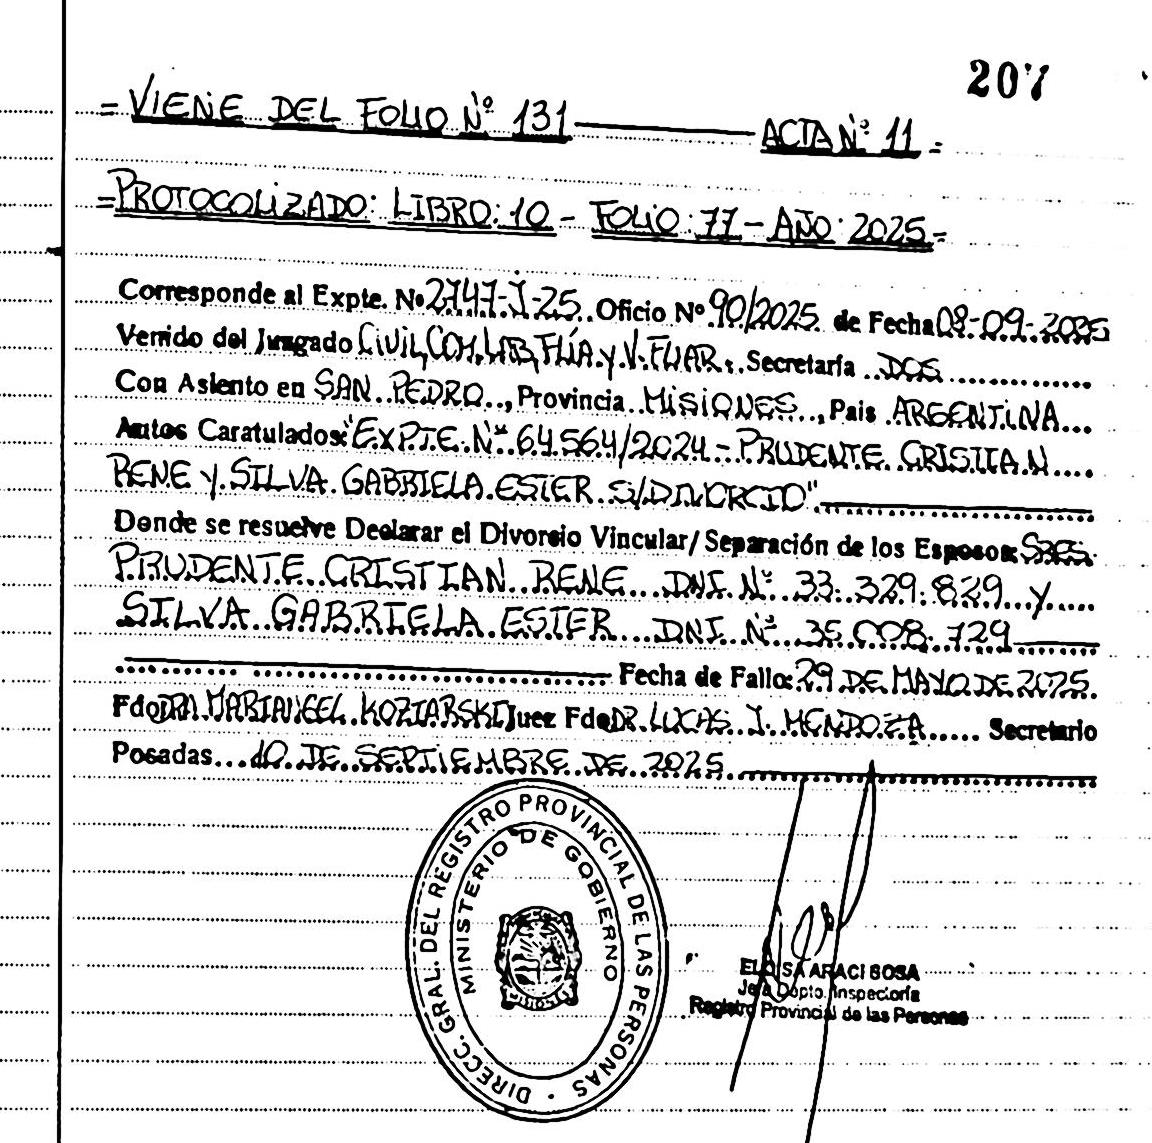 207
=VIENE DEL FOLIO Nº 131 ACTA Nº 11=
=PROTOCOLIZADO: LIBRO: 10 - FOLIO: 77 - AÑO: 2025=
Corresponde al Expte. Nº 2747-J-25. Oficio Nº 90/2025 de Fecha 08-09-2025
Venido del Juzgado CIVIL, COM, LAB, FLIA. y V. FLIAR. Secretaría DOS
Con Asiento en SAN PEDRO, Provincia MISIONES, Pais ARGENTINA
Autos Caratulados: "EXPTE. Nº 64.564/2024 - PRUDENTE CRISTIAN
RENE y SILVA GABRIELA ESTER S/DIVORCIO"
Donde se resuelve Declarar el Divorsio Vincular/Separación de los Esposos: SRES.
PRUDENTE CRISTIAN RENE DNI Nº 33.329.829 y
SILVA GABRIELA ESTER DNI Nº 35.008.729
Fecha de Fallo: 29 DE MAYO DE 2025.
Fdo DRA MARIANGEL KOZIARSKI Juez Fdo DR. LUCAS J. MENDOZA Secretario
Posadas 10 DE SEPTIEMBRE DE 2025
DIRECC. GRAL. DEL REGISTRO PROVINCIAL DE LAS PERSONAS
MINISTERIO DE GOBIERNO
ELOISA ARACI SOSA
Jefa Dpto. Inspectoría
Registro Provincial de las Personas